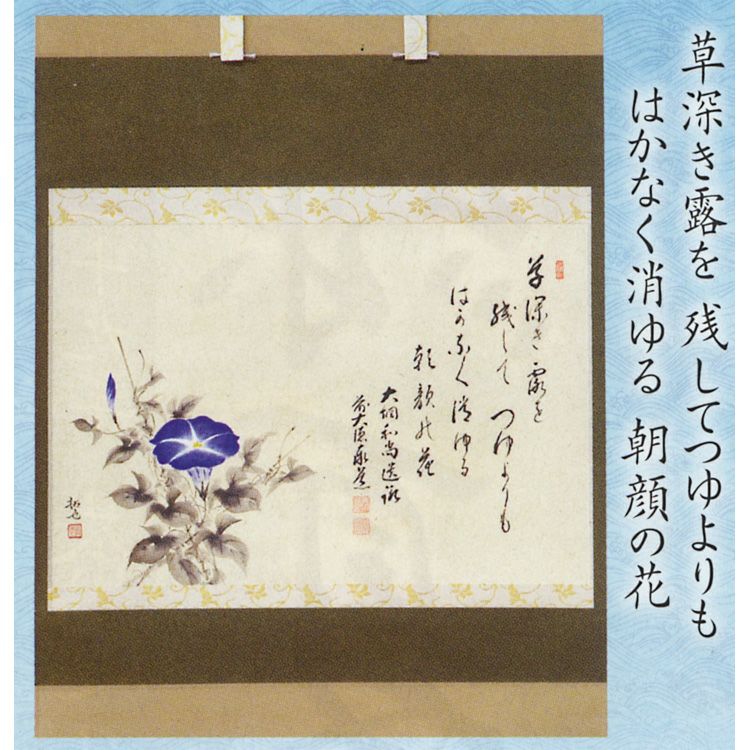 草深き露を 残してつゆよりも
はかなく消ゆる 朝顔の花
草深き露を
残して つゆよりも
はかなく消ゆる
朝顔の花
大綱和尚遺詠
前大徳